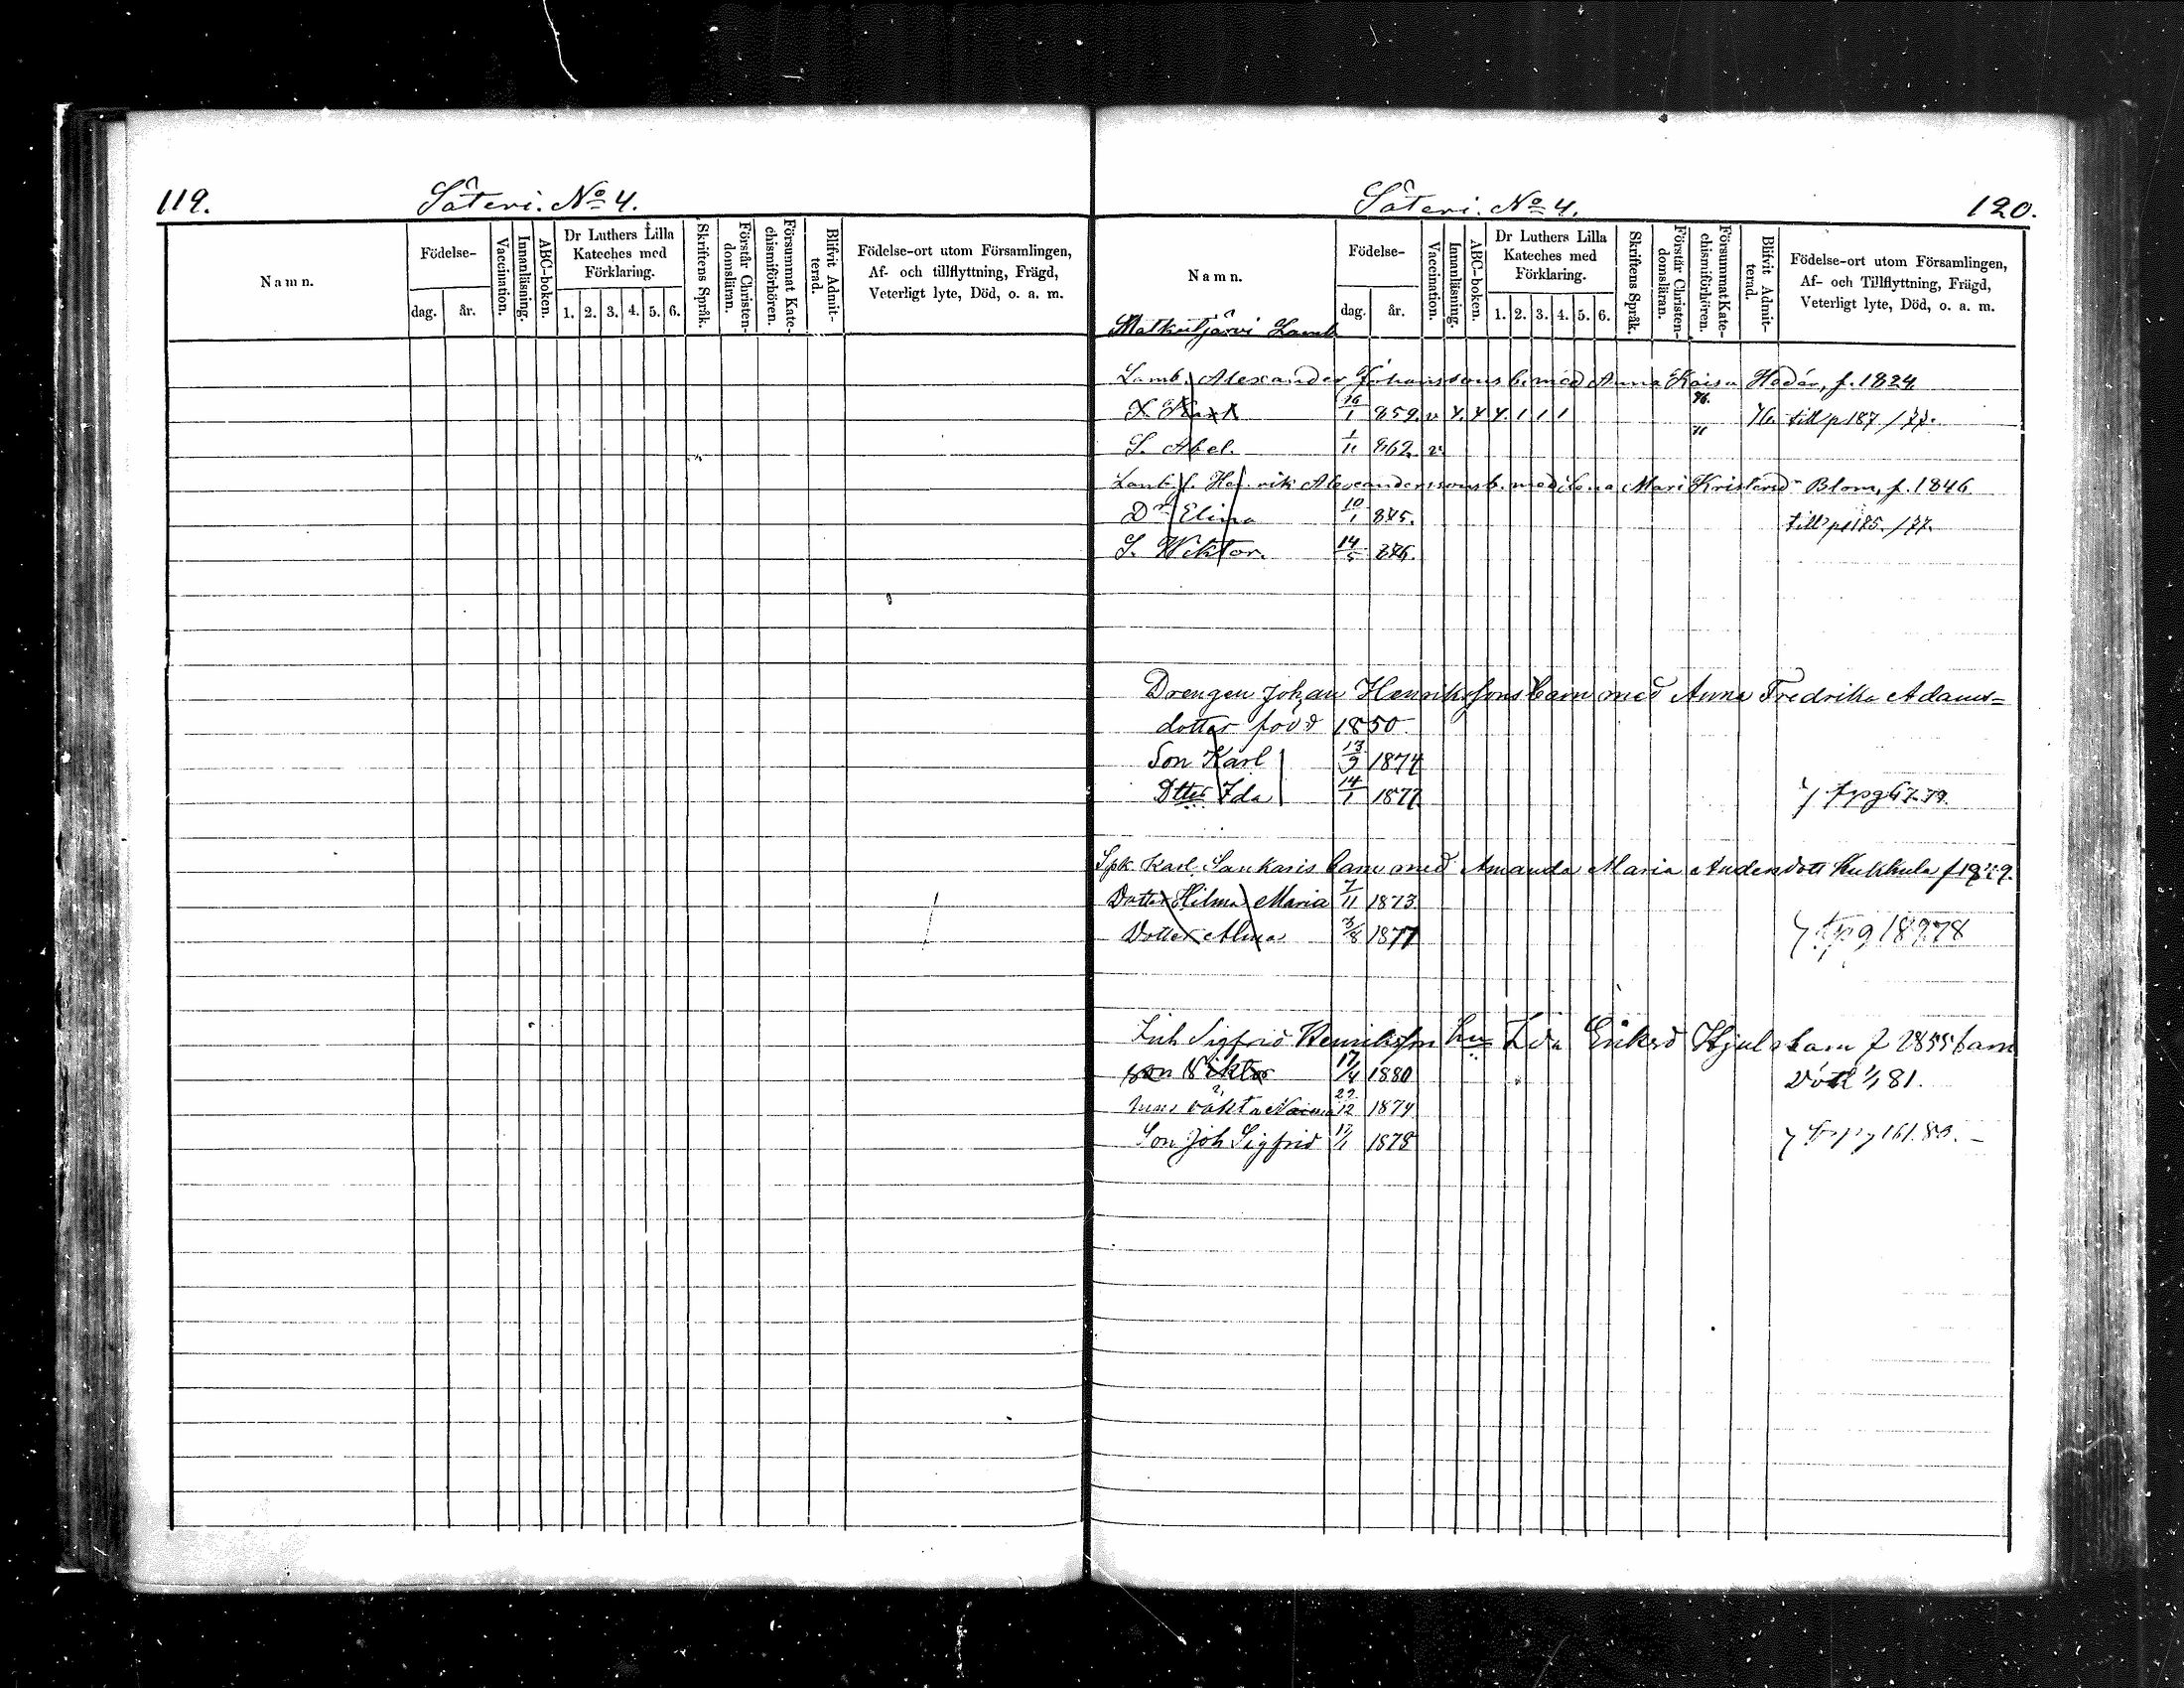 119. Säteri. No 4.
Namn.
Födelse-
dag. år.
Vaccination.
Innanläsning.
ABC-boken.
Dr Luthers Lilla Kateches med Förklaring.
1. 2. 3. 4. 5. 6.
Skriftens Språk.
Förstår Christendomsläran.
Försummat Katechismiförhören.
Blifvit Admitterad.
Födelse-ort utom Församlingen,
Af- och tillflyttning, Frägd,
Veterligt lyte, Död, o. a. m.
Säteri. No 4. 120.
Namn.
Födelse-
dag. år.
Vaccination.
Innanläsning.
ABC-boken.
Dr Luthers Lilla Kateches med Förklaring.
1. 2. 3. 4. 5. 6.
Skriftens Språk.
Förstår Christendomsläran.
Försummat Katechismiförhören.
Blifvit Admitterad.
Födelse-ort utom Församlingen,
Af- och Tillflyttning, Frägd,
Veterligt lyte, Död, o. a. m.
Matkutjärvi Lamb
Lamb. Alexander Johanssons b. med Anna Kaisa Hedér, f. 1824.
16/1 859. v 76. till p 187 /77.
S. Abel. 1/11 862. v
Lamb. f. Henrik Alexanderssons b. med Lena Mari Kristersd Blom, f. 1846.
Dr Elina 10/1 875. till p 185. /77.
S. Wiktor. 14/5 876.
Drengen Johan Henrikssons barn med Anna Fredrika Adams=
dotter född 1850
Son Karl 13/9 1874
Dtter Ida 14/1 1877
Spk Karl Sankaris barn med Amanda Maria Andersdott Kukkula
Dotter Hilma Maria 7/11 1873.
Dotter Alma 3/8 1877
Sigfrid Henriksson hu Eriksd barn
son Viktor 17/4 1880 död 1/1 81.
12 1874
Son Joh Sigfrid 17/1 1878